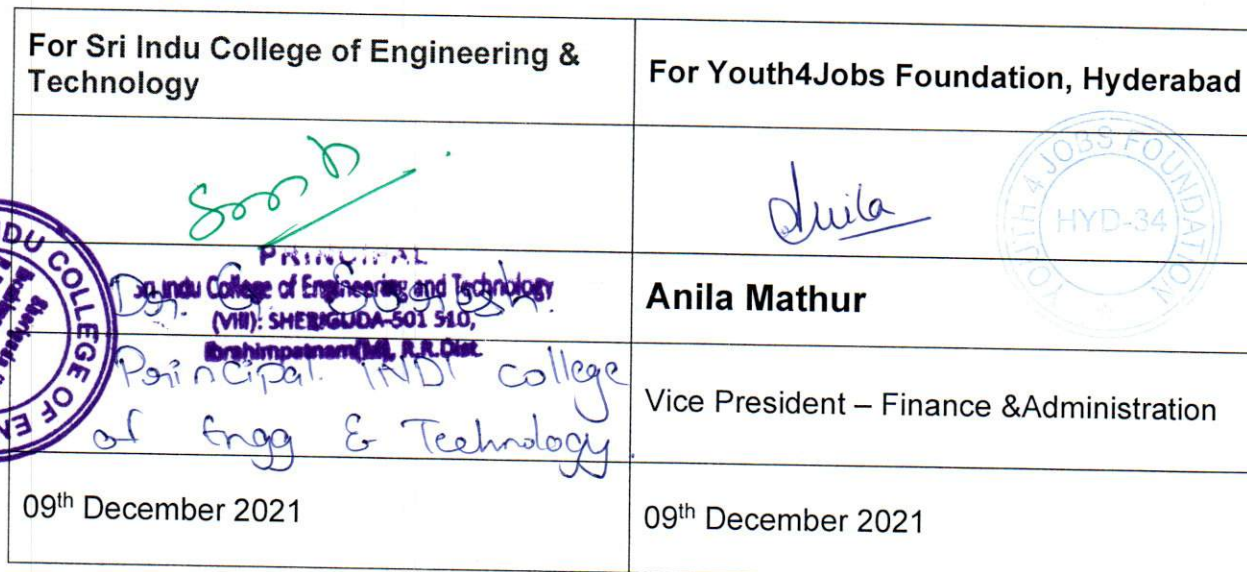 For Sri Indu College of Engineering &
Technology
For Youth4Jobs Foundation, Hyderabad
YOUTH 4 JOBS FOUNDATION
HYD-34
Anila
INDU COLLEGE OF
PRINCIPAL
Sri Indu College of Engineering and Technology
(VIII): SHERIGUDA-501 510,
Ibrahimpatnam(M), R.R.Dist.
Dr. G.
Principal. college
of Engg & Technology.
Anila Mathur
Vice President – Finance &Administration
09th December 2021
09th December 2021